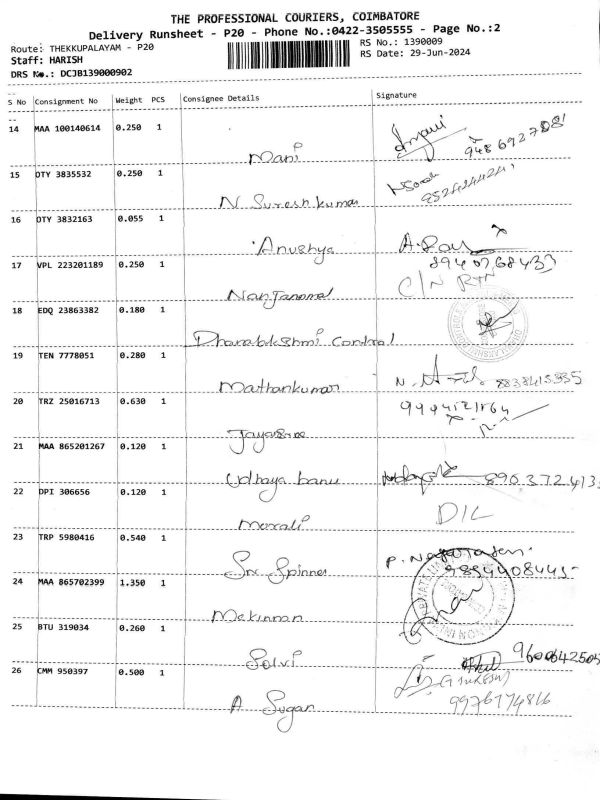 THE PROFESSIONAL COURIERS, COIMBATORE
Delivery Runsheet - P20 - Phone No.:0422-3505555 - Page No.:2
Route: THEKKUPALAYAM - P20
RS No.: 1390009
Staff: HARISH
RS Date: 29-Jun-2024
DRS No.: DCJB139000902
S No Consignment No Weight PCS Consignee Details Signature
14 MAA 100140614 0.250 1
Mani 9486927081
15 OTY 3835532 0.250 1
N Sureshkumar
16 OTY 3832163 0.055 1
Anushya
17 VPL 223201189 0.250 1 8940768433
Nanjammal C/N RTN
18 EDQ 23863382 0.180 1
Dhanalakshmi Control
19 TEN 7778051 0.280 1
Mathankumar 8838413335
20 TRZ 25016713 0.630 1
Jayasree
21 MAA 865201267 0.120 1
Udhaya banu 890 372 413
22 DPI 306656 0.120 1
Morali DIL
23 TRP 5980416 0.540 1
Sri Spinner 9894408445
24 MAA 865702399 1.350 1
Mekinnan
25 BTU 319034 0.260 1
Selvi 960064250
26 CMM 950397 0.500 1
A Sugan 9976174816